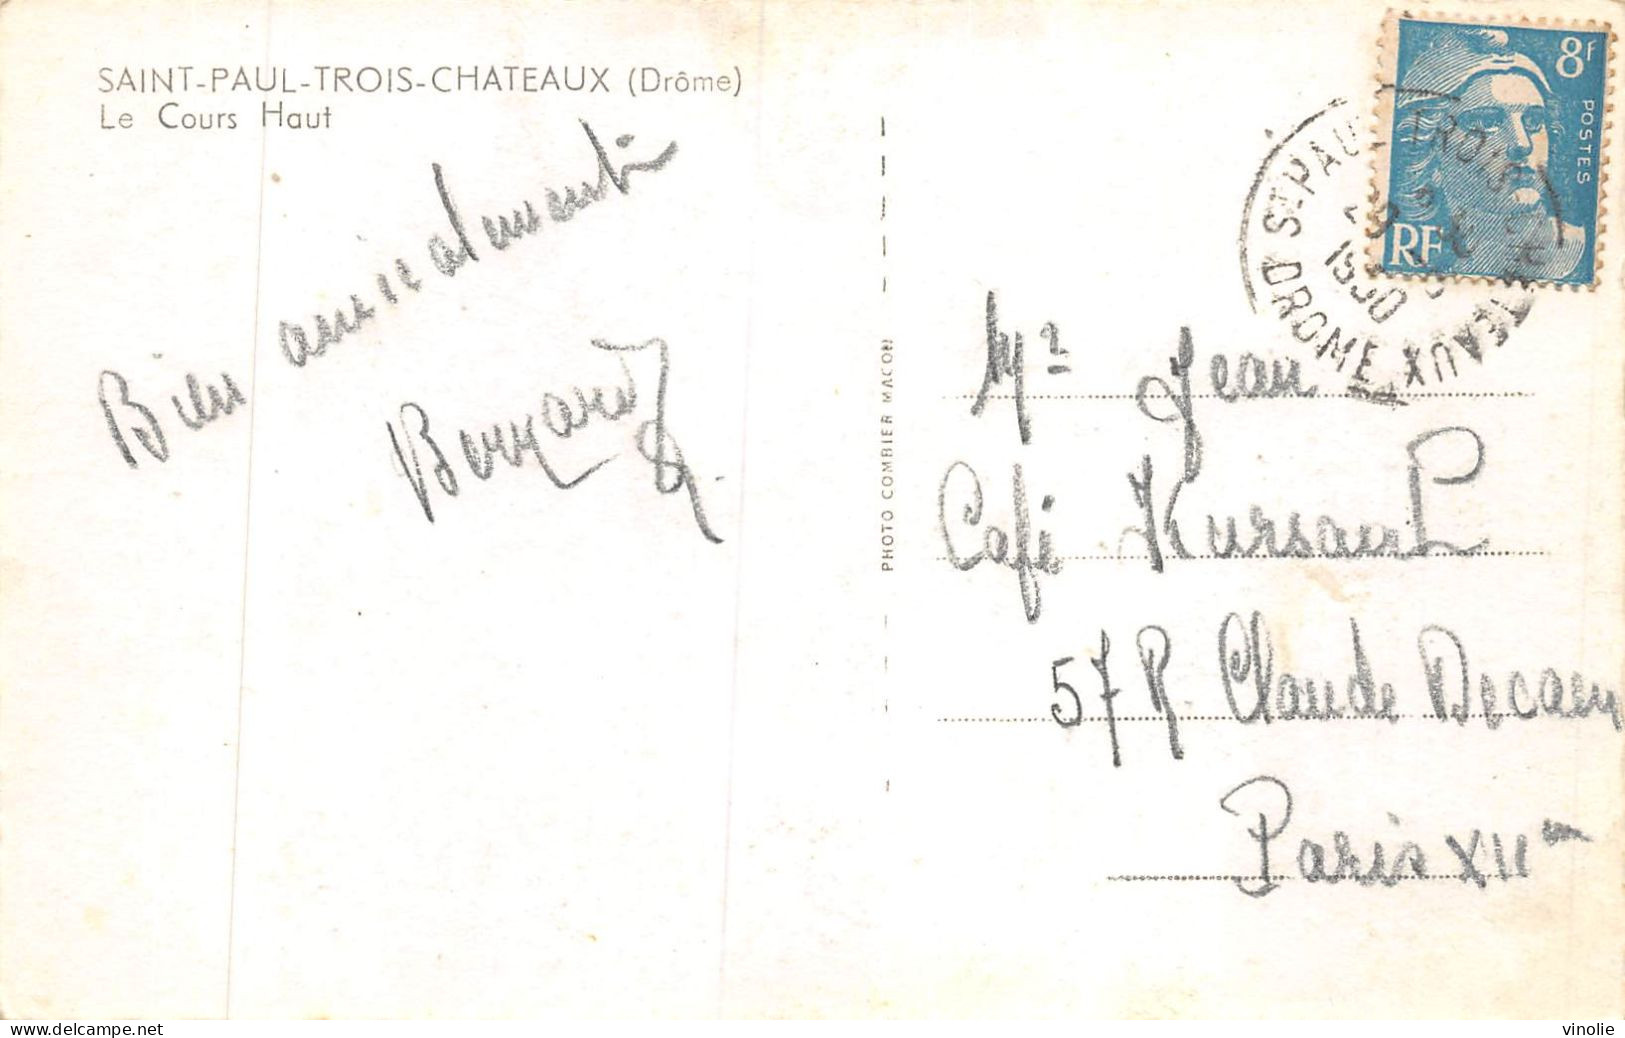 SAINT-PAUL-TROIS-CHATEAUX (Drôme)
Le Cours Haut
Bien amicalement
Bernard
PHOTO COMBIER MACON
8F
POSTES
RF
ST PAUL TROIS CHATEAUX
DROME
1950
Mr Jean
Café
57 R. Claude Decaen
Paris XIIem
delcampe.net
vinolie